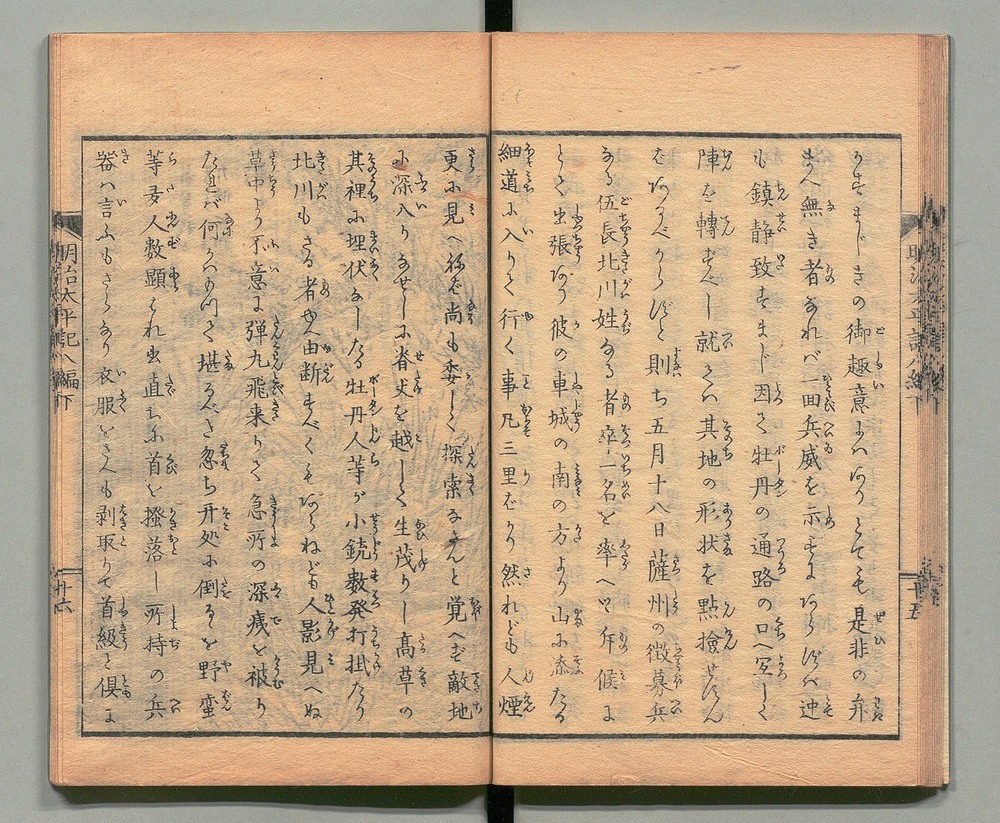 りすまじきの御趣意にハありとても是非の弁
まへ無き者なれバ一回兵威を示すにあらずバ迚
も鎮静致すまじ因て牡丹の通路の口へ宜しく
陣を轉すべし就てハ其地の形状を點撿せずん
バあるべからずと則ち五月十八日薩州の徴募兵
なる伍長北川姓なる者卒一名を率へて斥候に
とて出張あり彼の車城の南の方より山に添たる
細道に入りて行く事凡三里ばかり然れども人煙
更に見へねば尚も委しく探索なさんと覚へず敵地
に深入りなせしに脊丈を越して生茂りし高草の
其裡に埋伏なしたる牡丹人等が小銃数発打掛たり
北川もさる者由断すべくもあらねども人影見へぬ
草中より不意に弾丸飛来りて急所の深痍を被り
たれバ何かハ以て堪るべき忽ち其処に倒るゝを野蛮
等夛人数顕はれ出直ちに首を掻落し所持の兵
器ハ言ふもさらなり衣服をさへも剥取りて首級と倶に
明治太平記八編下
廿五
明治太平記八編下
廿六